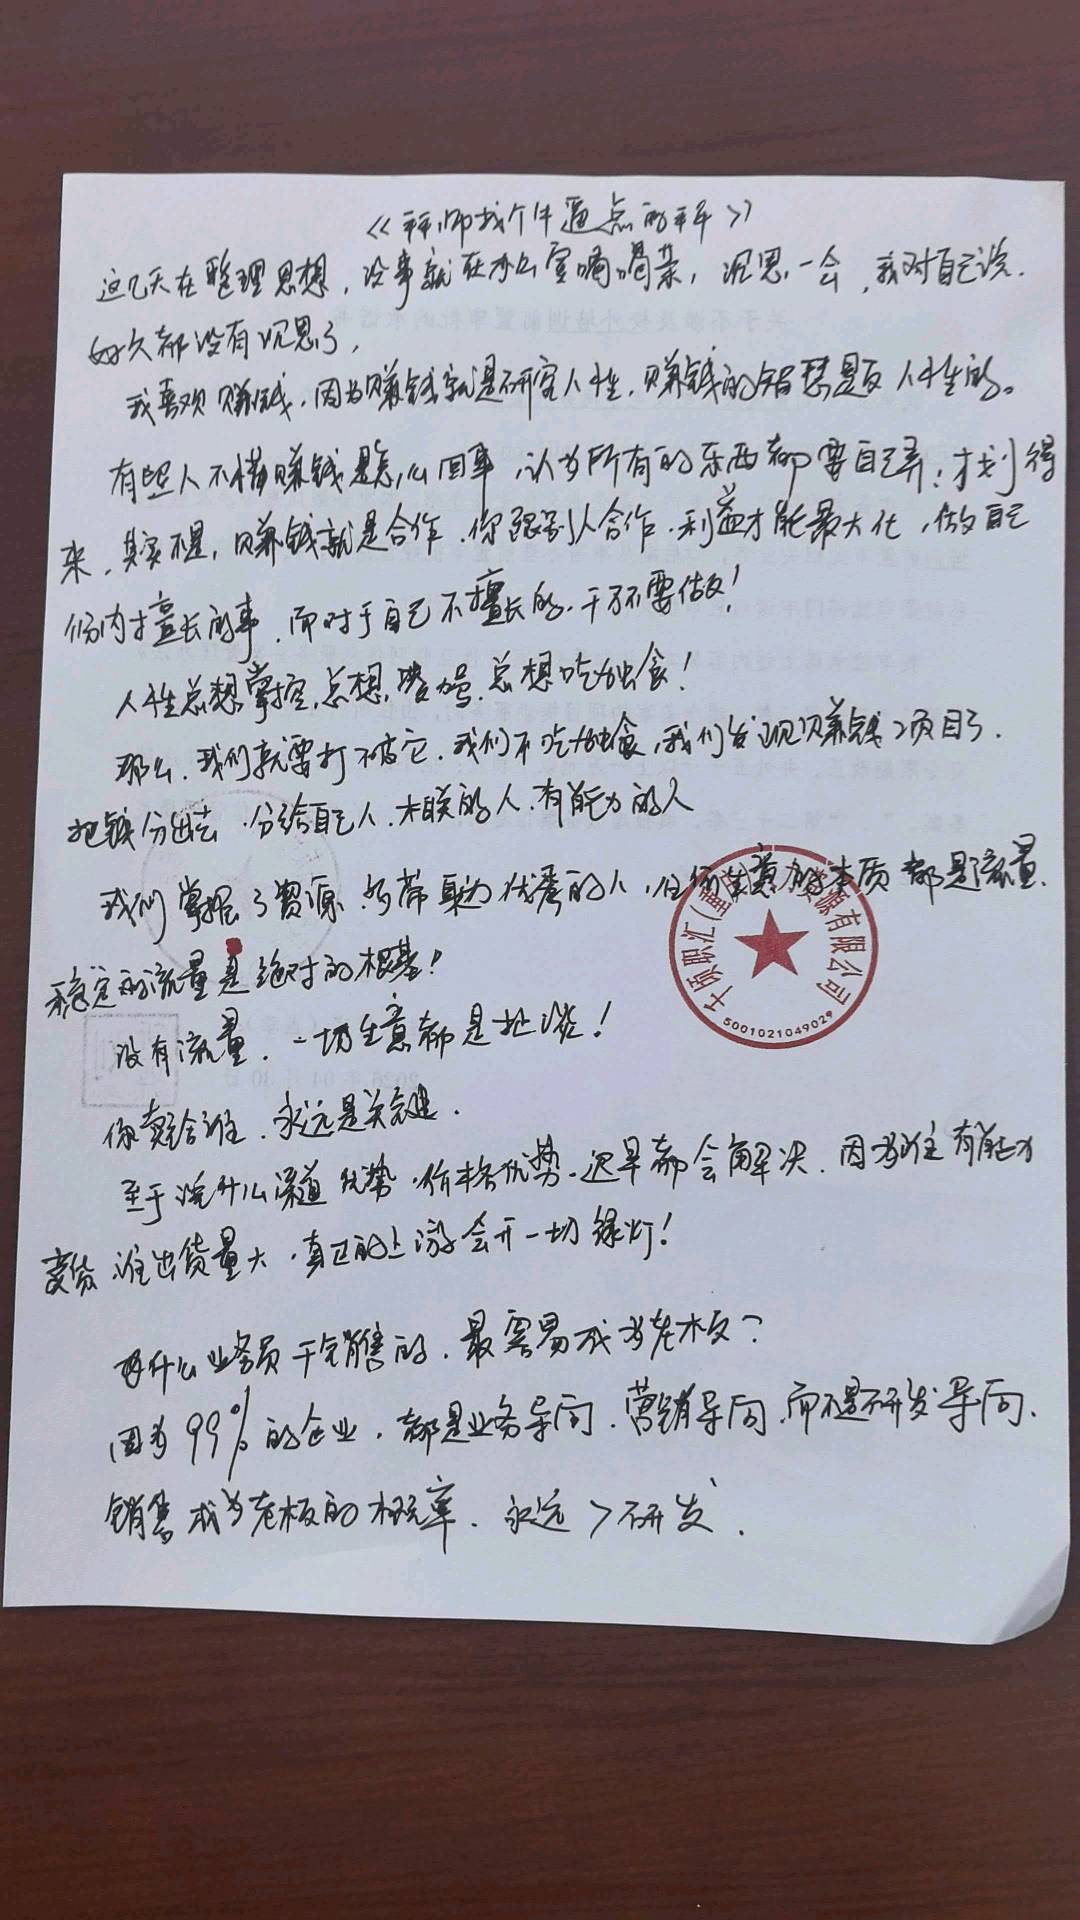 《拜师找个牛逼点的拜》
这几天在整理思想，没事就在办公室喝喝茶，沉思一会，我对自己说.
好久都没有沉思了，
我喜欢赚钱.因为赚钱就是研究人性，赚钱的钥匙是反人性的。
有些人不懂赚钱是怎么回事，认为所有的东西都要自己弄，才划得
来，其实不是，赚钱就是合作.你跟别人合作.利益才能最大化，做自己
份内擅长的事，而对于自己不擅长的.千万不要做！
人性总想掌控，总想,总想吃独食.
那么.我们就要打破它.我们不吃独食，我们发现赚钱项目了.
把钱分出去.分给自己人.相关的人.有能力的人
我们掌握了资源.优秀的人，任何生意的本质都是流量.
稳定的流量是绝对的根基！
没有流量，一切生意都是扯淡！
你卖给谁.永远是关键.
至于说什么渠道优势.价格优势.迟早都会解决.因为谁有能力
卖货谁出货量大.真正的上游会开一切绿灯！
为什么业务员干销售的.最容易成为老板？
因为99%的企业，都是业务导向.营销导向.而不是研发导向.
销售成为老板的概率.永远>研发.
千硕职汇(重庆)人力资源有限公司
5001021049029